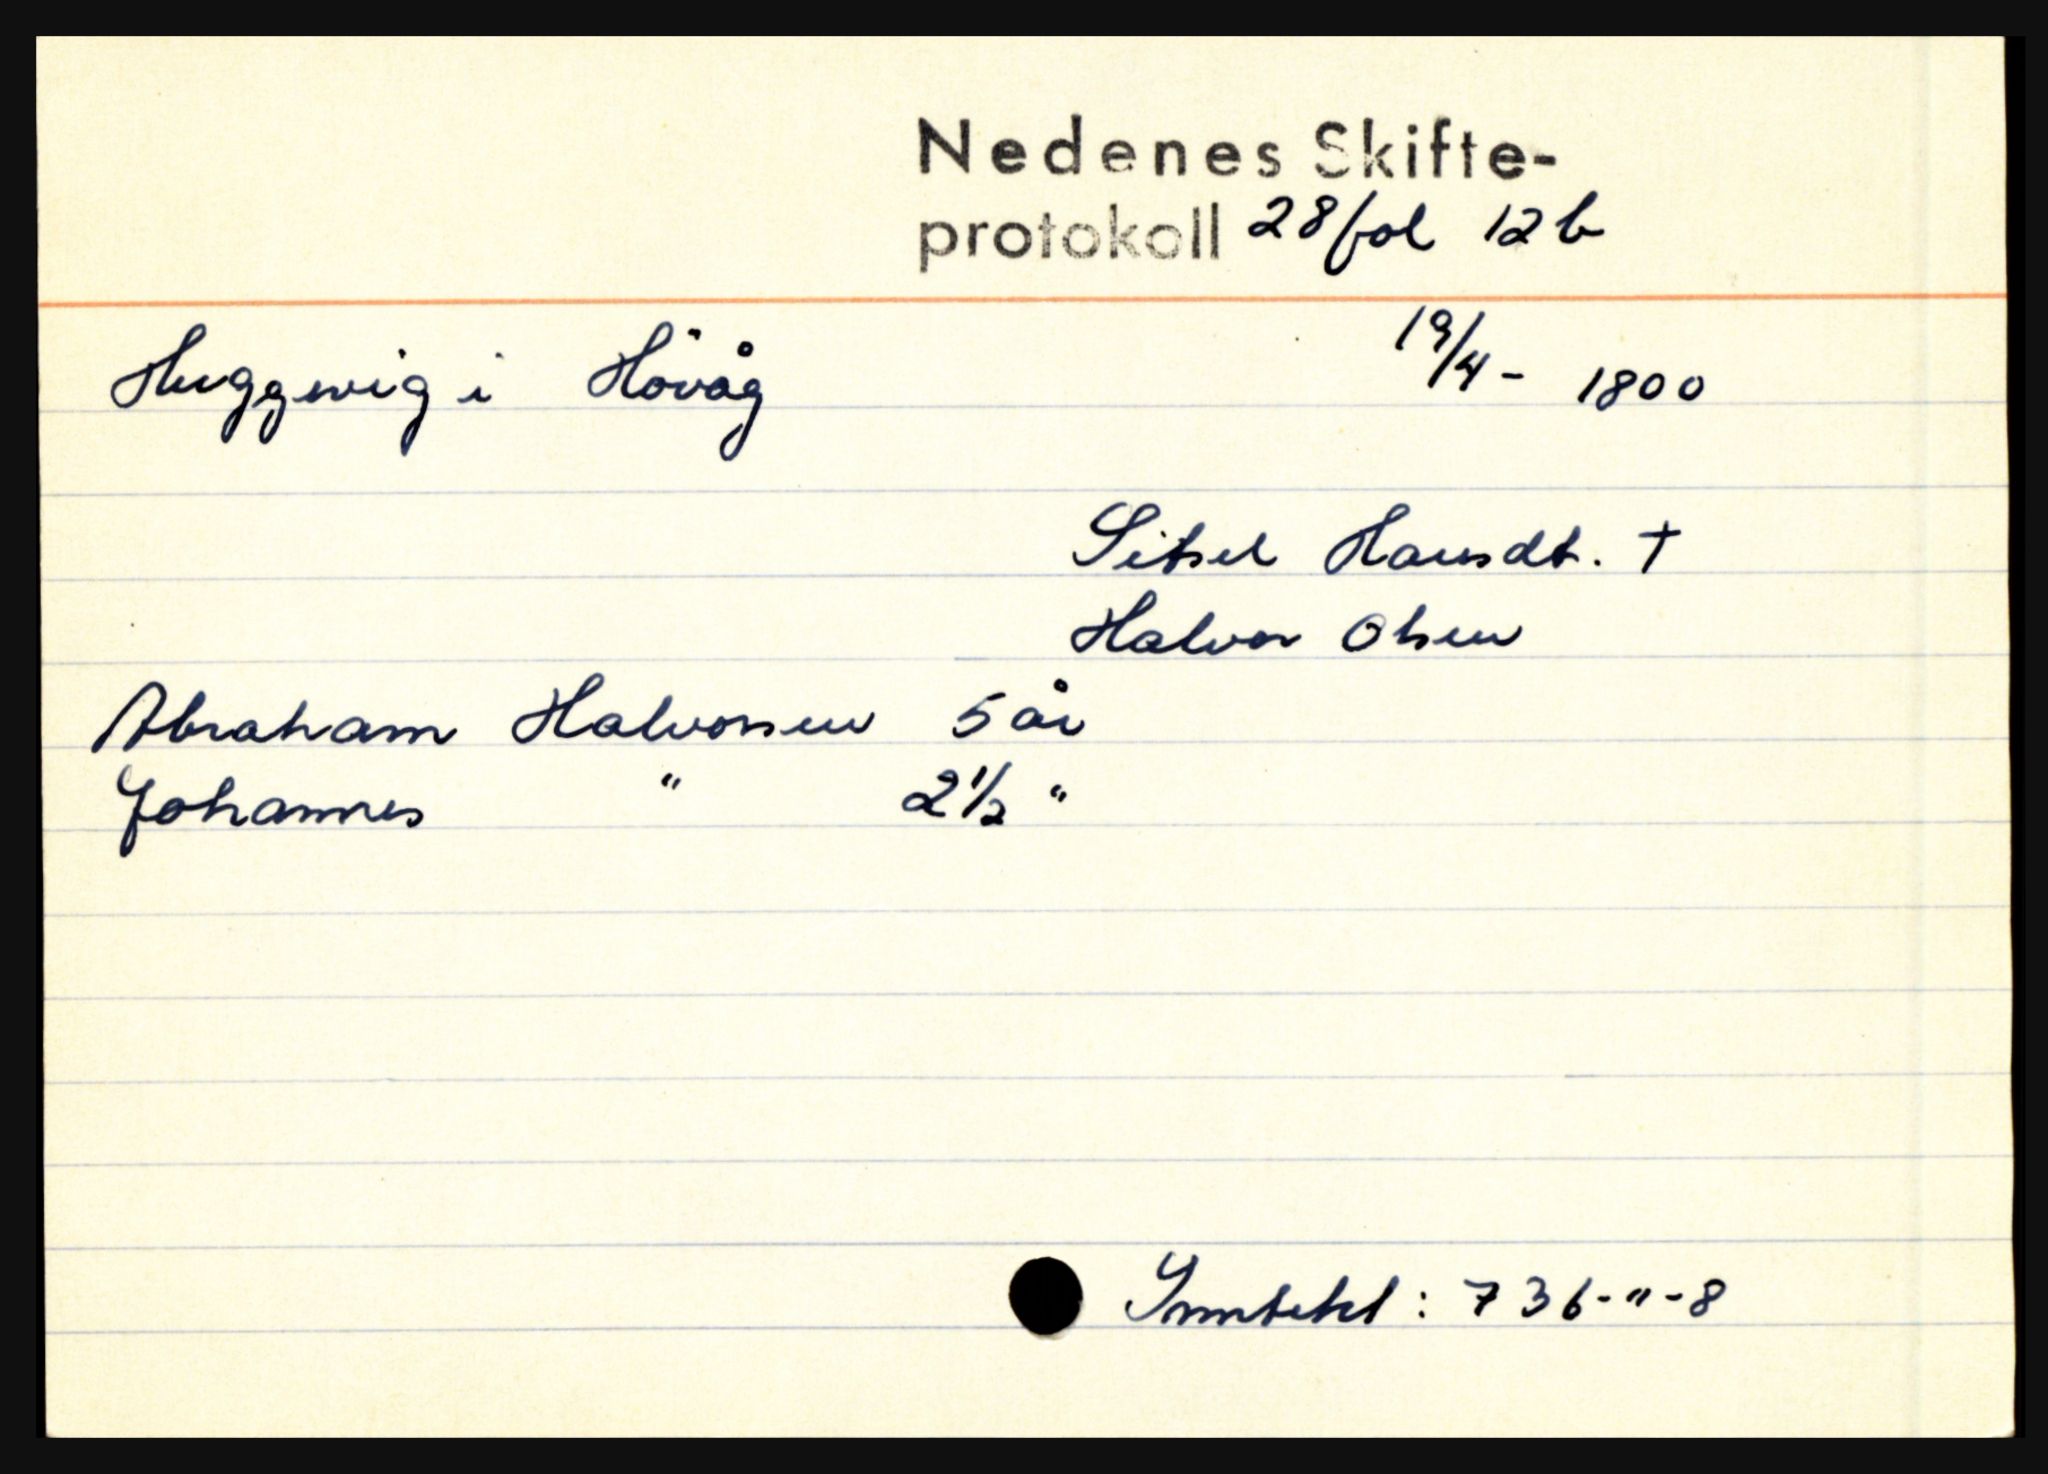 Nedenes Skifte-
protokoll 28 fol 12 b
Huggevig i Hövåg 19/4 - 1800
Sitsel Hansdt. †
Halvor Olsen
Abraham Halvorsen 5 år
Johannes " 2 1/2 "
Inntekt: 736-"-8